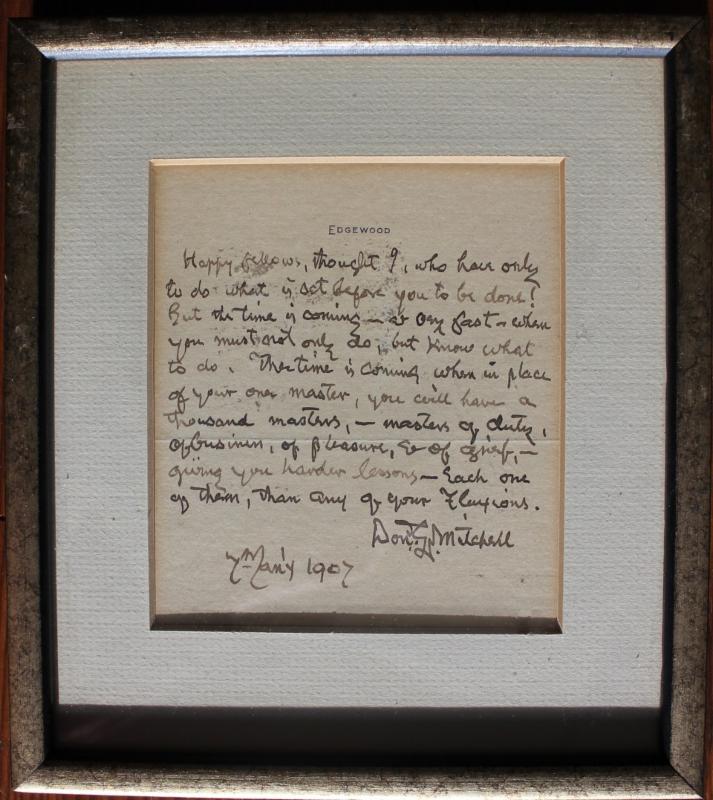 EDGEWOOD
Happy fellows, thought I, who have only
to do what is set before you to be done!
But the time is coming — & very fast — when
you must not only do, but know what
to do. The time is coming when in place
of your one master, you will have a
thousand masters, — masters of duty,
of business, of pleasure, & of grief, —
giving you harder lessons — Each one
of them, than any of your Fluxions.
Don. G. Mitchell
1907